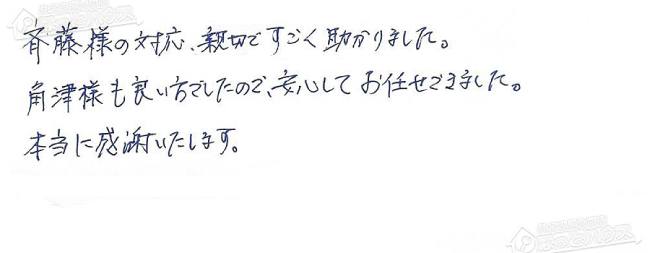 斉藤様の対応、親切ですごく助かりました。
角津様も良い方でしたので、安心してお任せできました。
本当に感謝いたします。